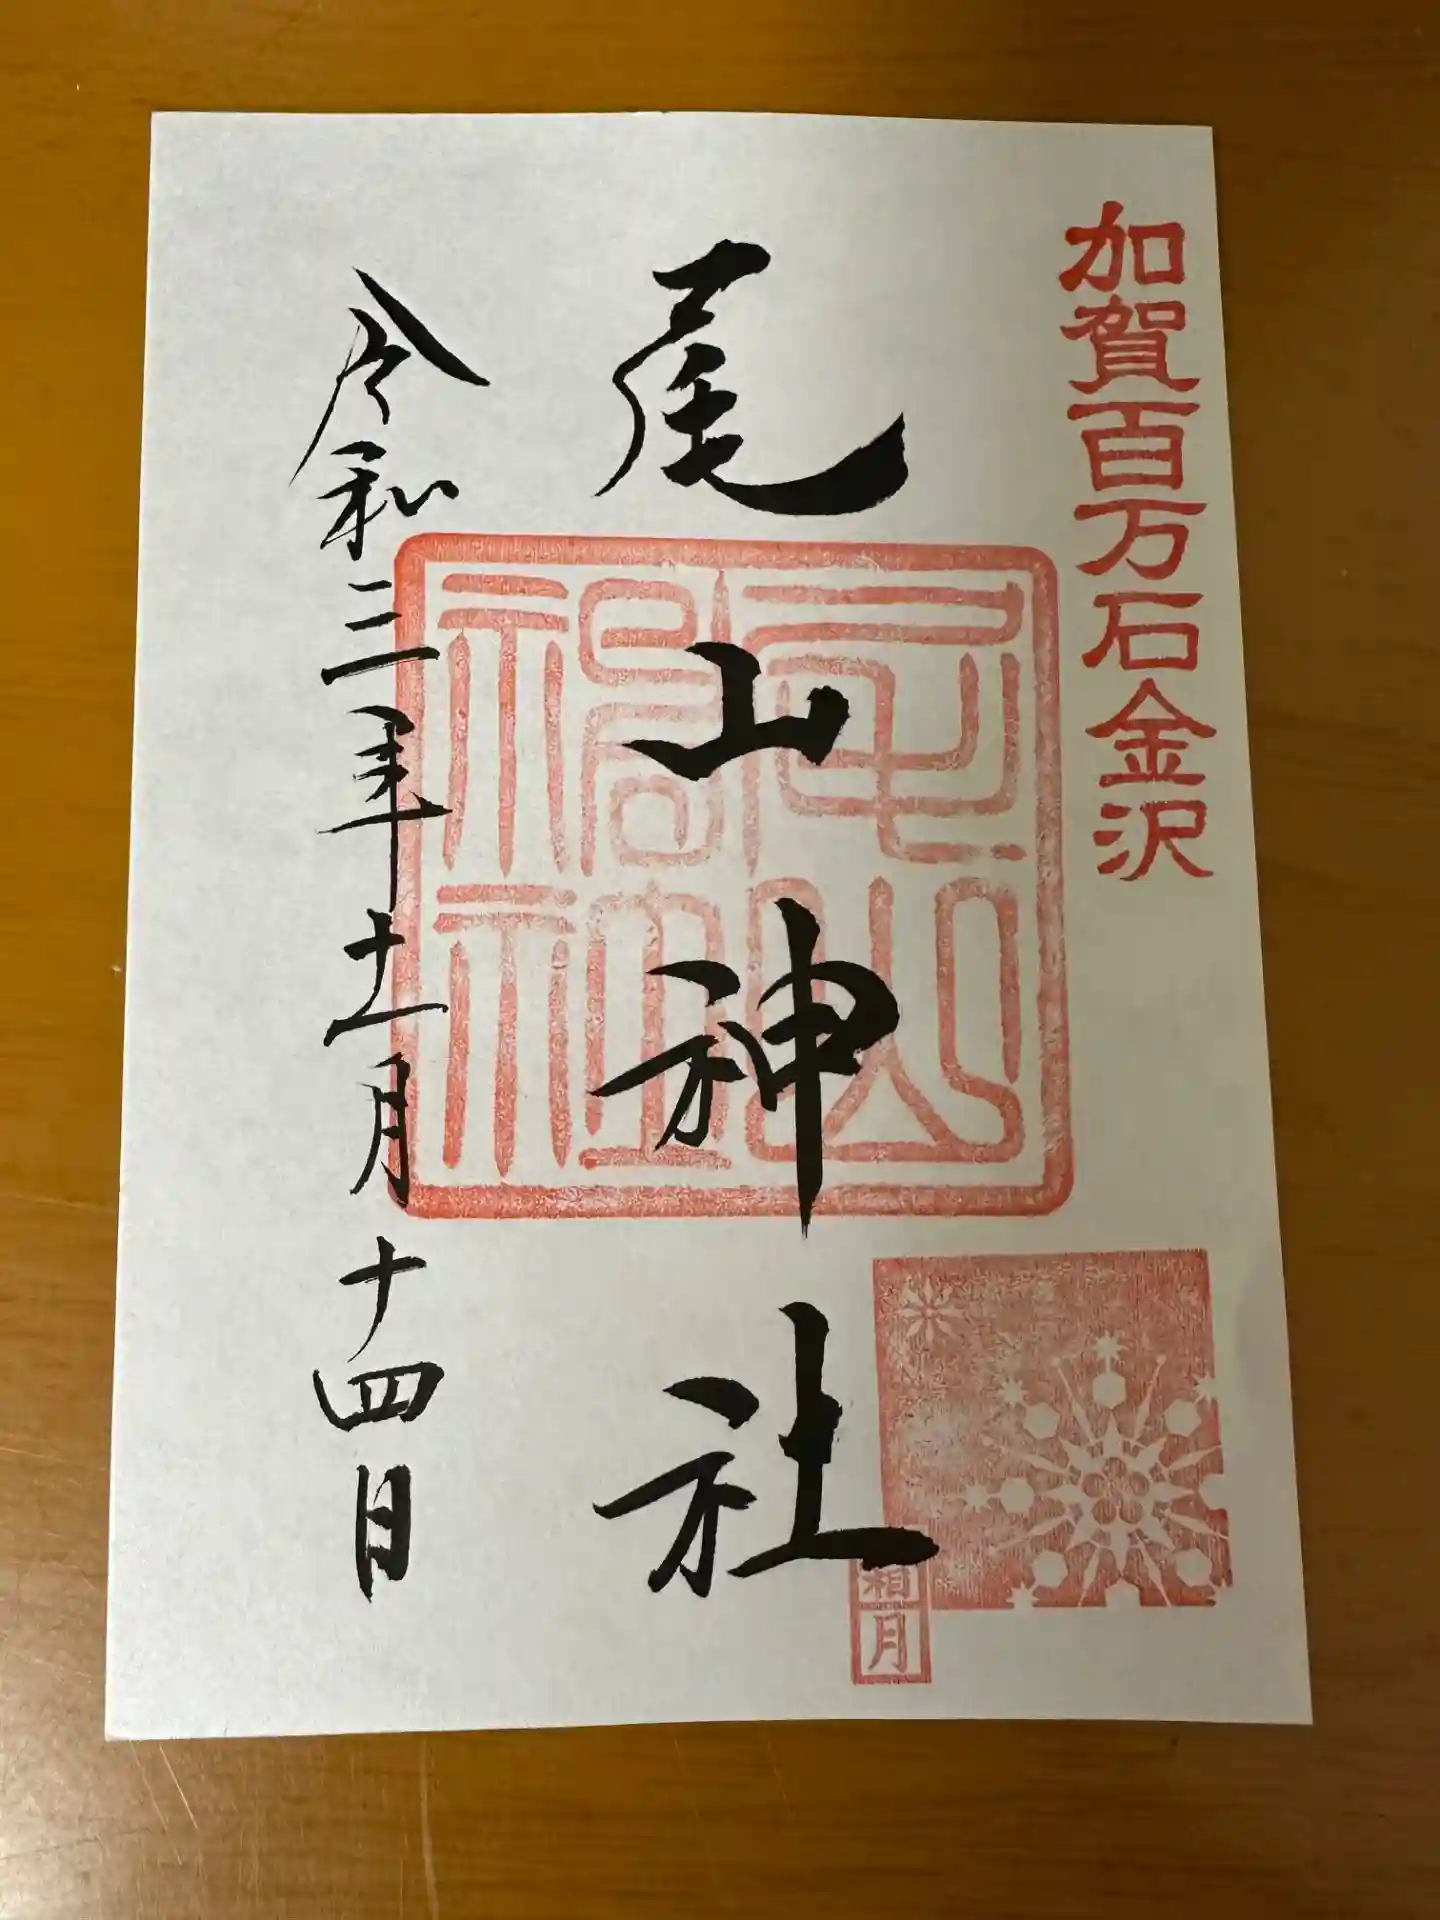 加賀百万石金沢
尾山神社
尾山神社
霜月
令和三年十一月十四日